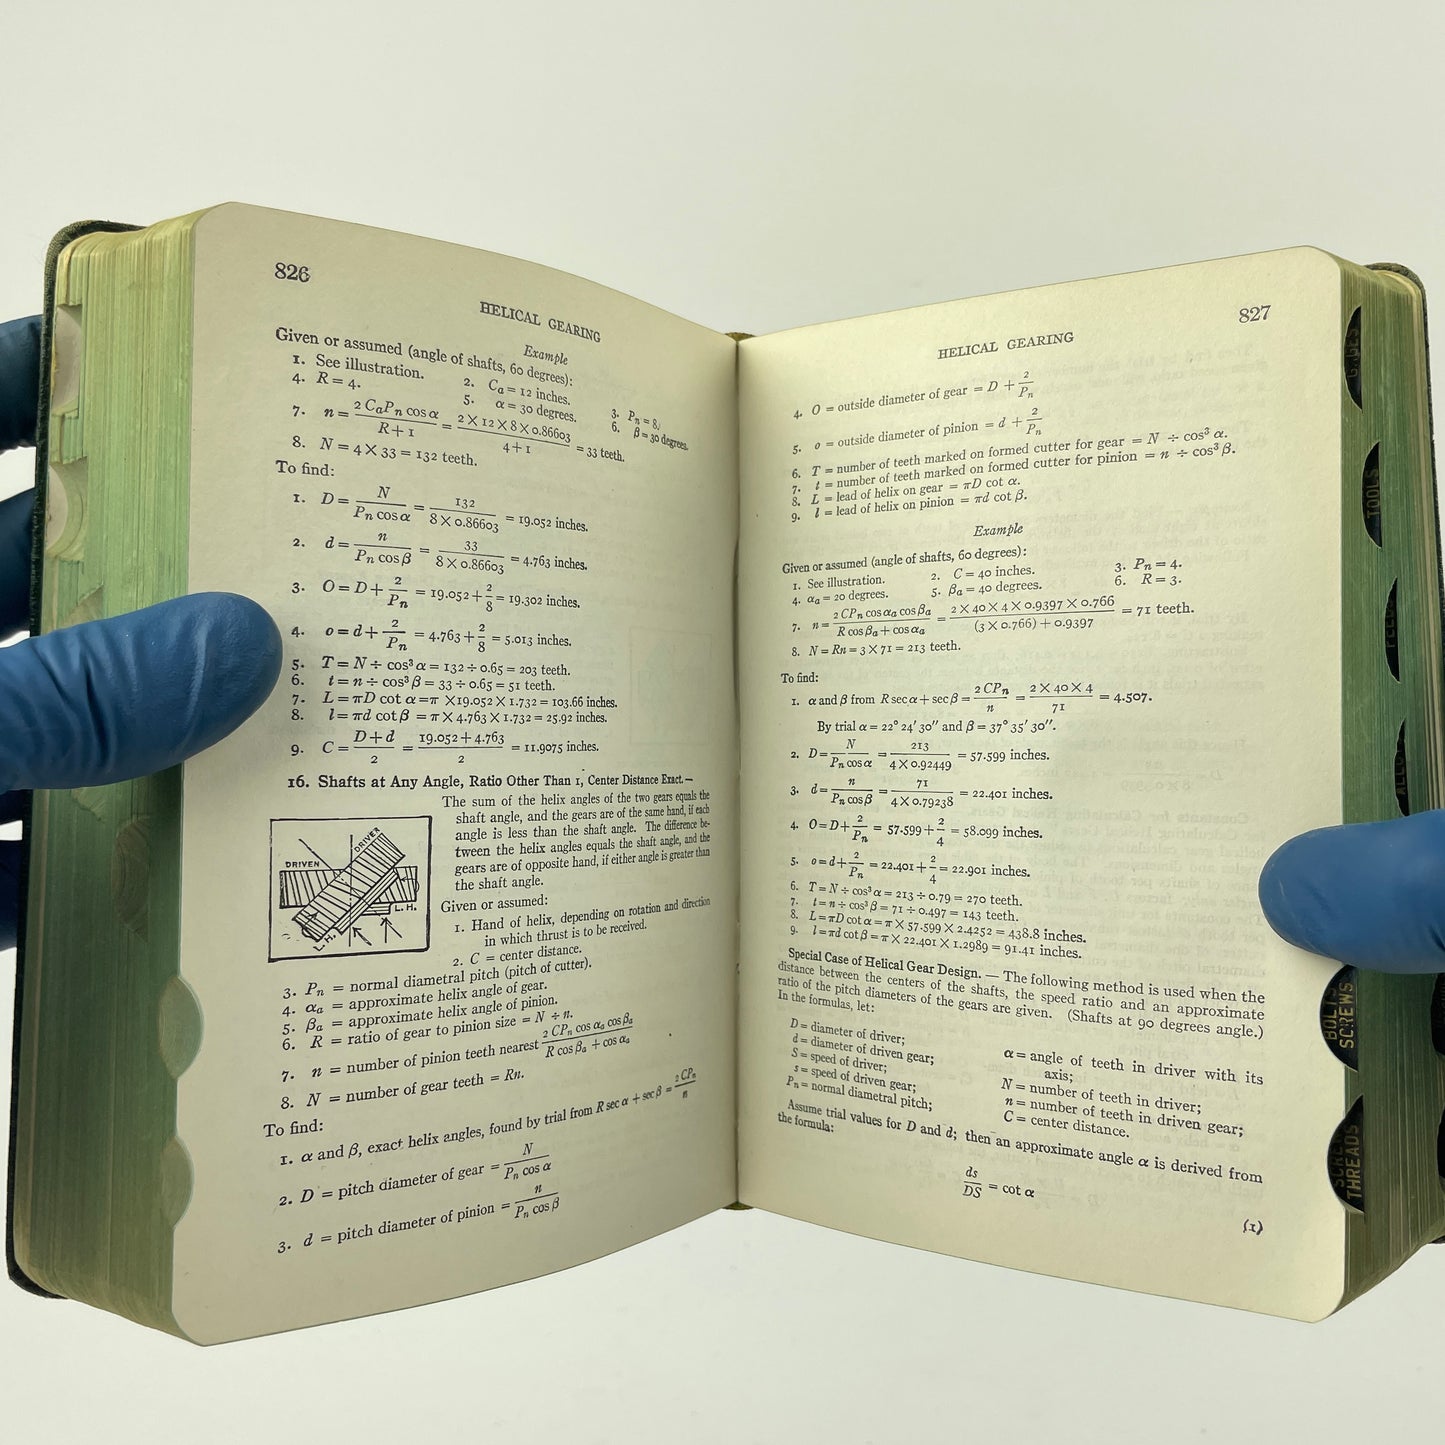 826
HELICAL GEARING
Example
Given or assumed (angle of shafts, 60 degrees):
1. See illustration. 2. Cₐ = 12 inches. 3. Pₙ = 8.
4. R = 4. 5. α = 30 degrees. 6. β = 30 degrees.
7. n = 2 CₐPₙ cos α / R + 1 = 2 × 12 × 8 × 0.86603 / 4 + 1 = 33 teeth.
8. N = 4 × 33 = 132 teeth.
To find:
1. D = N / Pₙ cos α = 132 / 8 × 0.86603 = 19.052 inches.
2. d = n / Pₙ cos β = 33 / 8 × 0.86603 = 4.763 inches.
3. O = D + 2 / Pₙ = 19.052 + 2 / 8 = 19.302 inches.
4. o = d + 2 / Pₙ = 4.763 + 2 / 8 = 5.013 inches.
5. T = N ÷ cos³ α = 132 ÷ 0.65 = 203 teeth.
6. t = n ÷ cos³ β = 33 ÷ 0.65 = 51 teeth.
7. L = πD cot α = π × 19.052 × 1.732 = 103.66 inches.
8. l = πd cot β = π × 4.763 × 1.732 = 25.92 inches.
9. C = D + d / 2 = 19.052 + 4.763 / 2 = 11.9075 inches.
16. Shafts at Any Angle, Ratio Other Than 1, Center Distance Exact. —
The sum of the helix angles of the two gears equals the
shaft angle, and the gears are of the same hand, if each
angle is less than the shaft angle. The difference be-
tween the helix angles equals the shaft angle, and the
gears are of opposite hand, if either angle is greater than
the shaft angle.
DRIVEN
DRIVER
L.H.
L.H.
Given or assumed:
1. Hand of helix, depending on rotation and direction
in which thrust is to be received.
2. C = center distance.
3. Pₙ = normal diametral pitch (pitch of cutter).
4. αₐ = approximate helix angle of gear.
5. βₐ = approximate helix angle of pinion.
6. R = ratio of gear to pinion size = N ÷ n.
7. n = number of pinion teeth nearest 2 CPₙ cos αₐ cos βₐ / R cos βₐ + cos αₐ
8. N = number of gear teeth = Rn.
To find:
1. α and β, exact helix angles, found by trial from R sec α + sec β = 2 CPₙ / n
2. D = pitch diameter of gear = N / Pₙ cos α
3. d = pitch diameter of pinion = n / Pₙ cos β
827
HELICAL GEARING
4. O = outside diameter of gear = D + 2 / Pₙ
5. o = outside diameter of pinion = d + 2 / Pₙ
6. T = number of teeth marked on formed cutter for gear = N ÷ cos³ α.
7. t = number of teeth marked on formed cutter for pinion = n ÷ cos³ β.
8. L = lead of helix on gear = πD cot α.
9. l = lead of helix on pinion = πd cot β.
Example
Given or assumed (angle of shafts, 60 degrees):
1. See illustration. 2. C = 40 inches. 3. Pₙ = 4.
4. αₐ = 20 degrees. 5. βₐ = 40 degrees. 6. R = 3.
7. n = 2 CPₙ cos αₐ cos βₐ / R cos βₐ + cos αₐ = 2 × 40 × 4 × 0.9397 × 0.766 / (3 × 0.766) + 0.9397 = 71 teeth.
8. N = Rn = 3 × 71 = 213 teeth.
To find:
1. α and β from R sec α + sec β = 2 CPₙ / n = 2 × 40 × 4 / 71 = 4.507.
By trial α = 22° 24′ 30″ and β = 37° 35′ 30″.
2. D = N / Pₙ cos α = 213 / 4 × 0.92449 = 57.599 inches.
3. d = n / Pₙ cos β = 71 / 4 × 0.79238 = 22.401 inches.
4. O = D + 2 / Pₙ = 57.599 + 2 / 4 = 58.099 inches.
5. o = d + 2 / Pₙ = 22.401 + 2 / 4 = 22.901 inches.
6. T = N ÷ cos³ α = 213 ÷ 0.79 = 270 teeth.
7. t = n ÷ cos³ β = 71 ÷ 0.497 = 143 teeth.
8. L = πD cot α = π × 57.599 × 2.4252 = 438.8 inches.
9. l = πd cot β = π × 22.401 × 1.2989 = 91.41 inches.
Special Case of Helical Gear Design. — The following method is used when the
distance between the centers of the shafts, the speed ratio and an approximate
ratio of the pitch diameters of the gears are given. (Shafts at 90 degrees angle.)
In the formulas, let:
D = diameter of driver;
d = diameter of driven gear;
S = speed of driver;
s = speed of driven gear;
Pₙ = normal diametral pitch;
α = angle of teeth in driver with its
axis;
N = number of teeth in driver;
n = number of teeth in driven gear;
C = center distance.
Assume trial values for D and d; then an approximate angle α is derived from
the formula:
ds / DS = cot α
(1)
TOOLS
BOLTS
SCREWS
THREADS